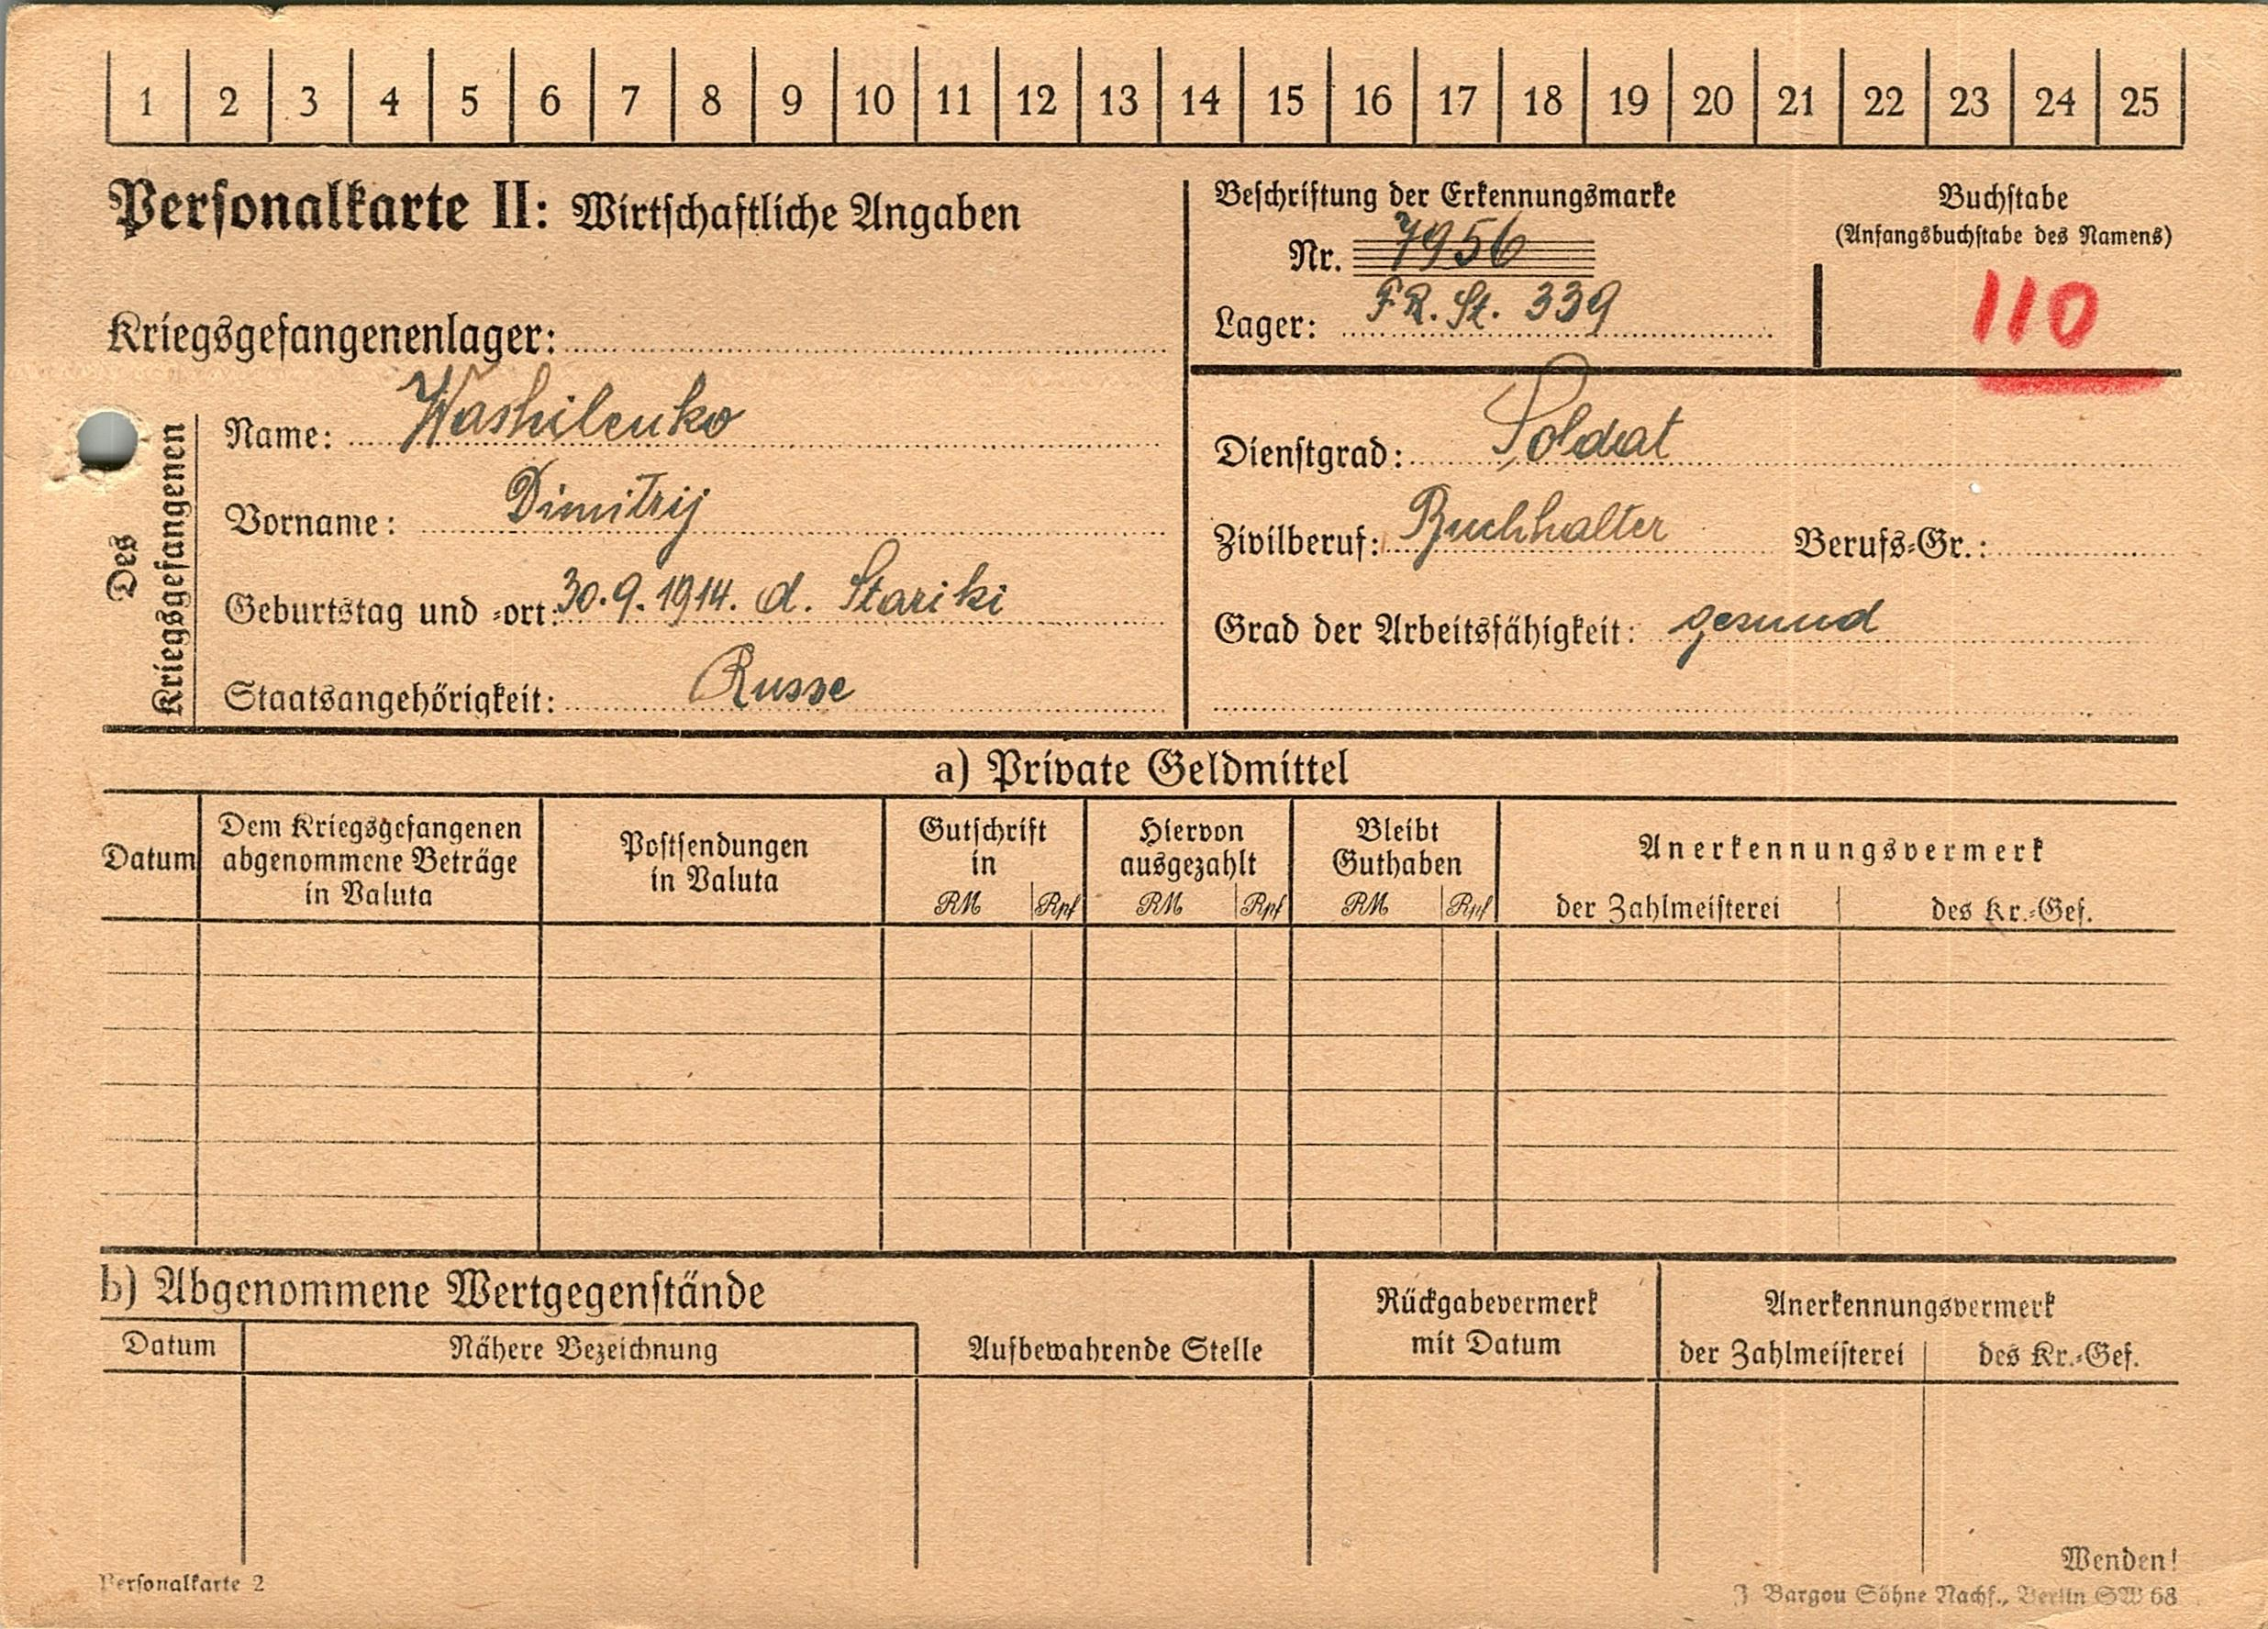 1 2 3 4 5 6 7 8 9 10 11 12 13 14 15 16 17 18 19 20 21 22 23 24 25
Personalkarte II: Wirtschaftliche Angaben
Kriegsgefangenenlager:
Beschriftung der Erkennungsmarke
Nr. 7956
Lager: FR. St. 339
Buchstabe
(Anfangsbuchstabe des Namens)
110
Des
Kriegsgefangenen
Name: Washilenko
Vorname: Dimitrij
Geburtstag und -ort: 30.9.1914. d. Stariki
Staatsangehörigkeit: Russe
Dienstgrad: Soldat
Zivilberuf: Buchhalter Berufs-Gr.:
Grad der Arbeitsfähigkeit: gesund
a) Private Geldmittel
Datum
Dem Kriegsgefangenen
abgenommene Beträge
in Valuta
Postsendungen
in Valuta
Gutschrift
in
RM Rpf
Hiervon
ausgezahlt
RM Rpf
Bleibt
Guthaben
RM Rpf
Anerkennungsvermerk
der Zahlmeisterei des Kr.-Gef.
b) Abgenommene Wertgegenstände
Datum Nähere Bezeichnung
Aufbewahrende Stelle
Rückgabevermerk
mit Datum
Anerkennungsvermerk
der Zahlmeisterei des Kr.-Gef.
Wenden!
Personalkarte 2
J Bargou Söhne Nachf., Berlin SW 68